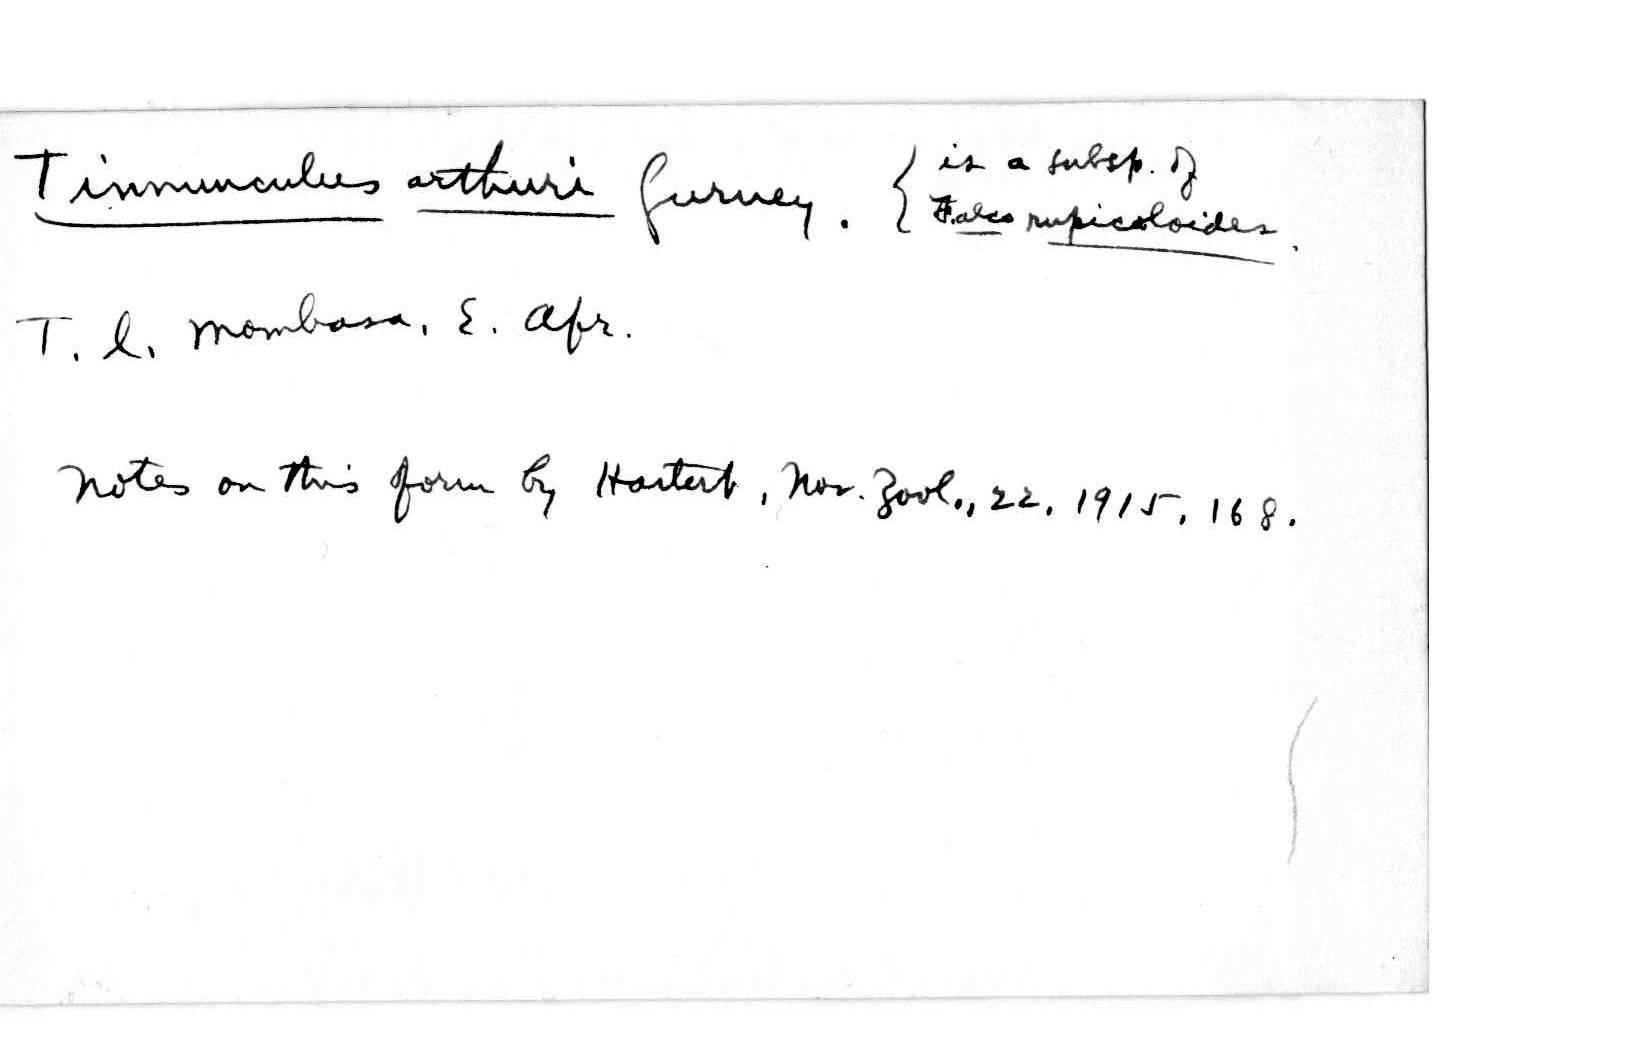 Tinnunculus arthuri Gurney. { is a subsp. of
Falco rupicoloides.
T. l. Mombasa, E. Afr.
Notes on this form by Hartert, Nov. Zool., 22, 1915, 168.